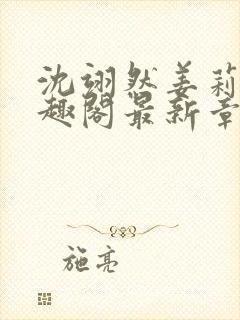 沈翊然姜莉
趣阁最新章
施亮